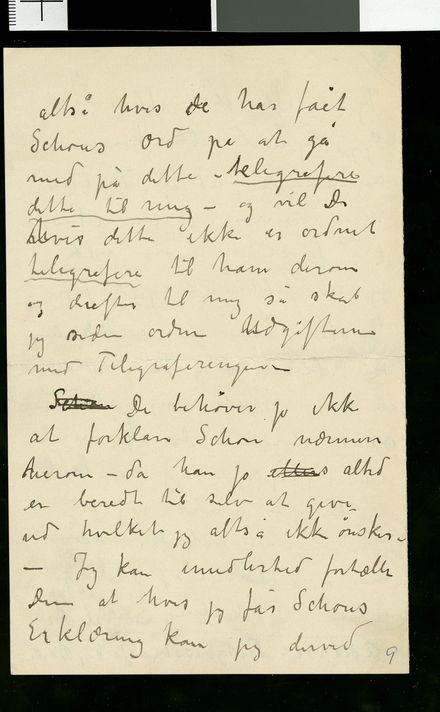 altså hvis De har fået
Schous Ord på at gå
med på dette - telegrafere
dette til mig - og vil De
hvis dette ikke er ordnet
telegrafere til ham derom
og derefter til mig så skal
jeg siden ordne Udgifterne
med Telegraferingen -
De behøver jo ikke
at forklare Schou nærmere
herom - da han jo altid
er beredt til selv at give
ud hvilket jeg altså ikke ønsker -
- Jeg kan imidlertid fortælle
Dem at hvis jeg får Schous
Erklæring kan jeg derved
9